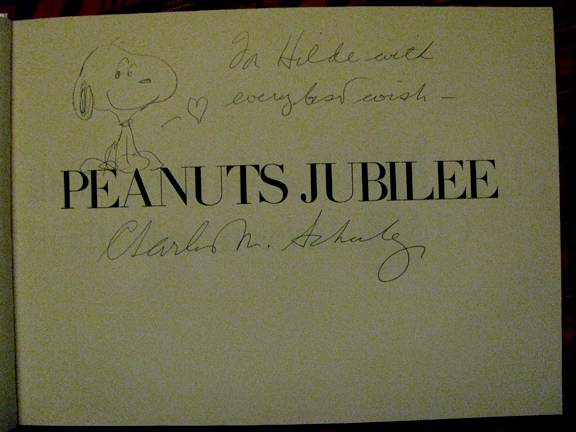 For Hilde with
every best wish —
PEANUTS JUBILEE
Charles M. Schulz